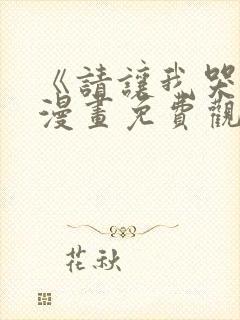 《請讓我哭
漫畫免費觀
花秋